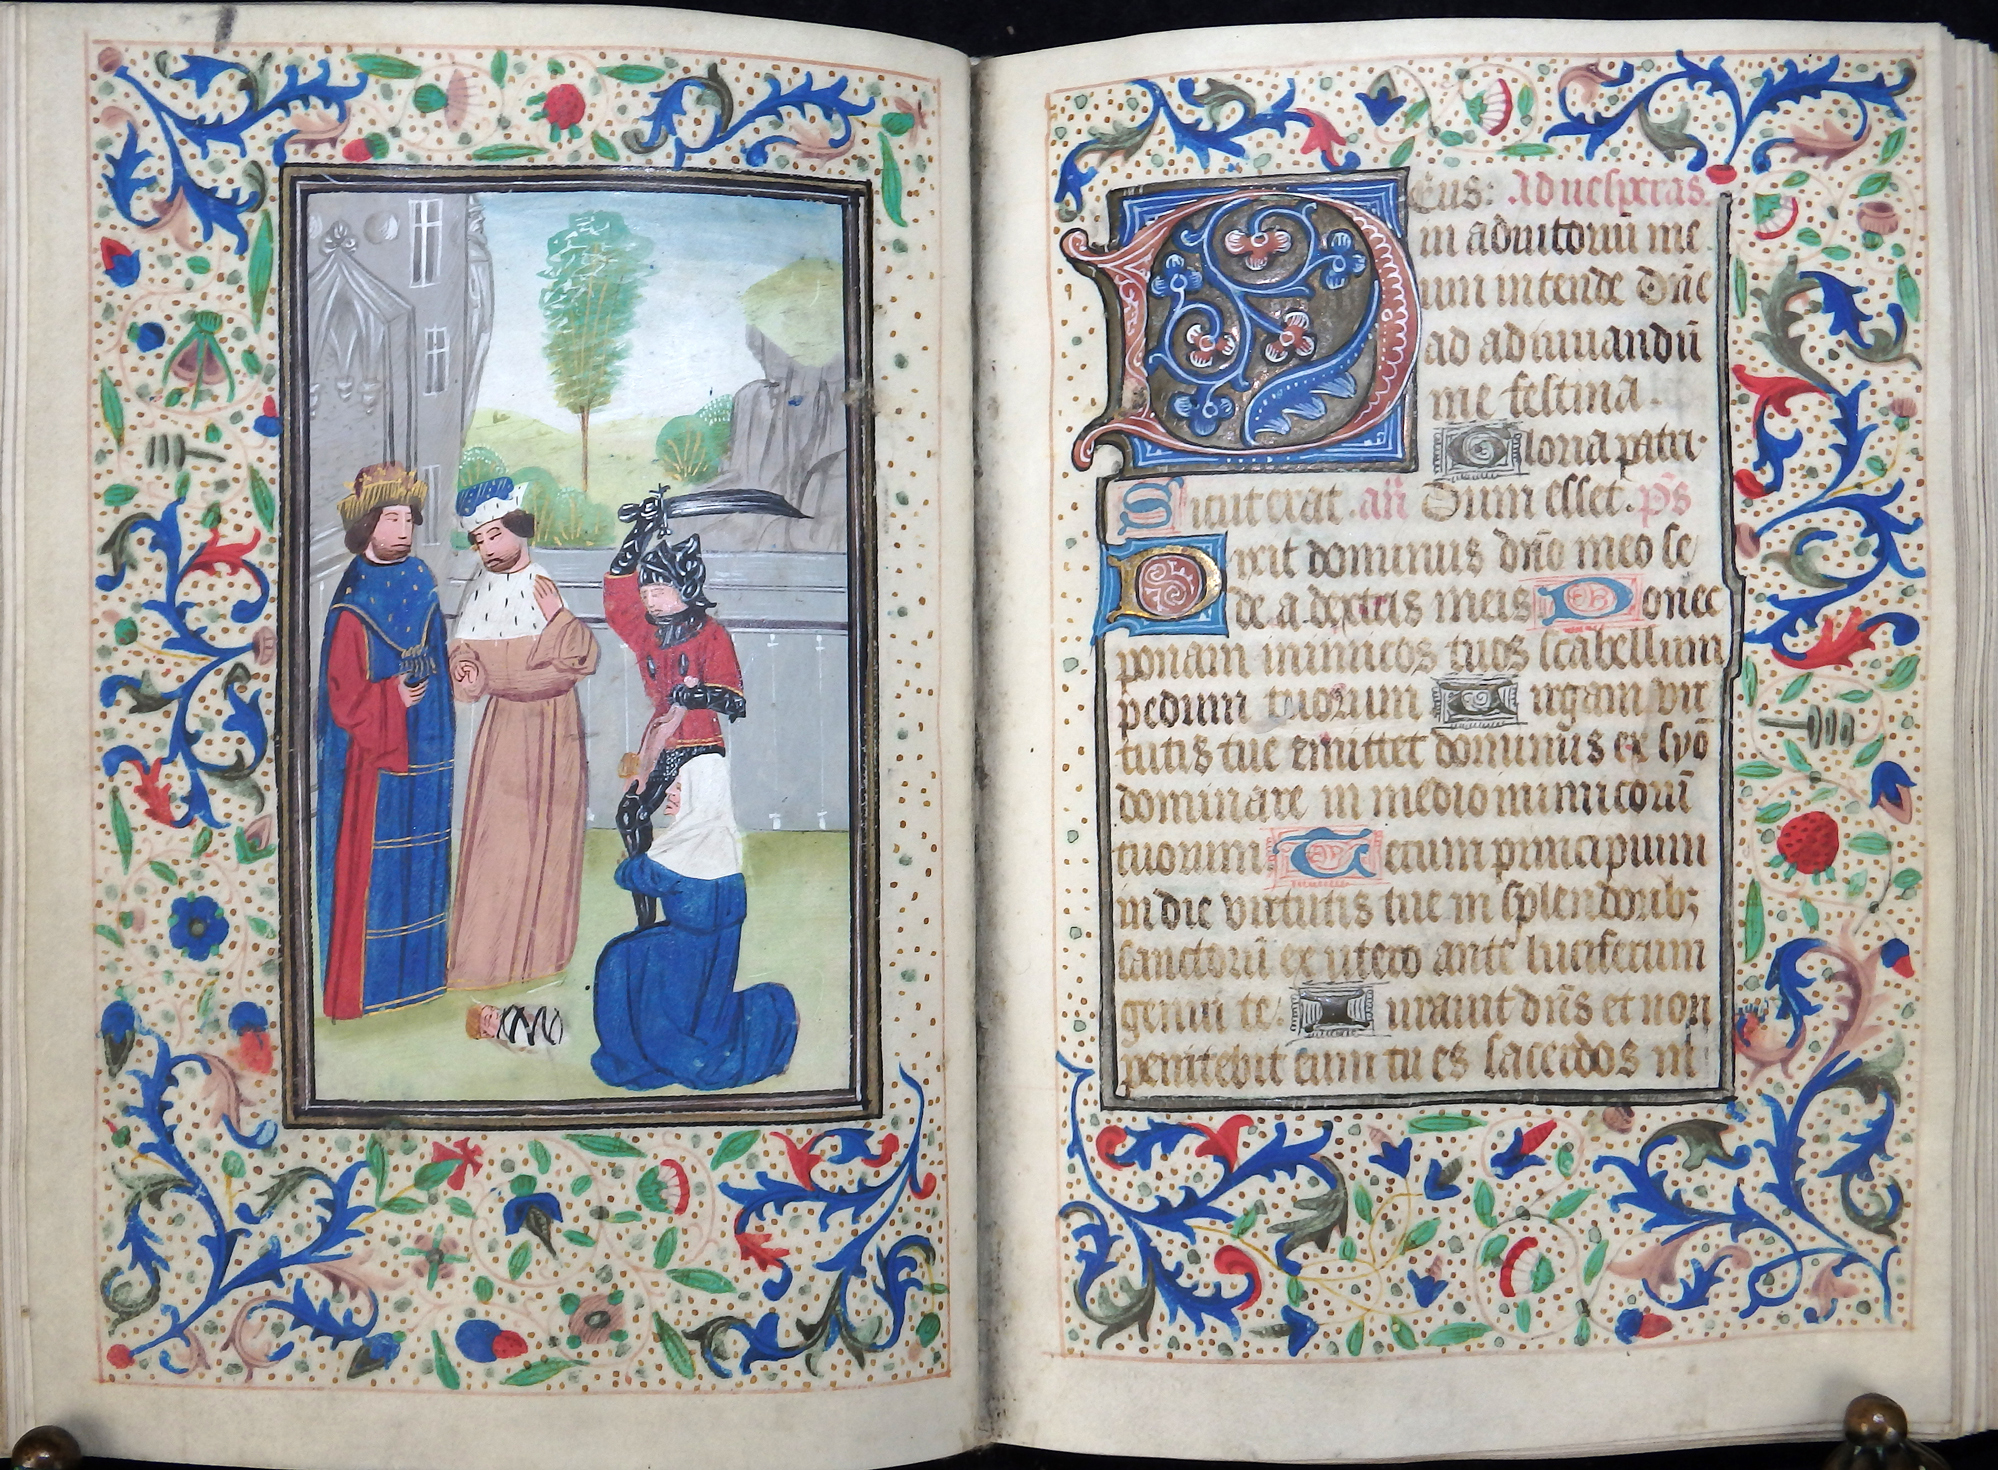 Deus: Ad vesperas
in adiutoriū me
um intende Dn̄e
ad adiuuandū
me festina.
Gloria patri.
Sicut erat añ Dum esset. p̄s
Dixit dominus dn̄o meo se
de a dextris meis Donec
ponam inimicos tuos scabellum
pedum tuorum Virgam vir
tutis tue emittet dominus ex syō
dominare in medio inimicorū
tuorum Tecum principium
in die virtutis tue in splendorib;
sanctorū ex utero ante luciferum
genui te. Iurauit dn̄s et non
penitebit eum tu es sacerdos in